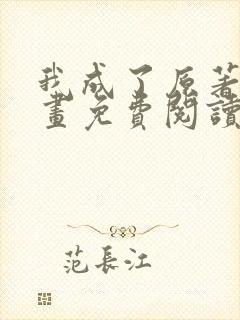 我成了原著
畫免費閱讀
范長江